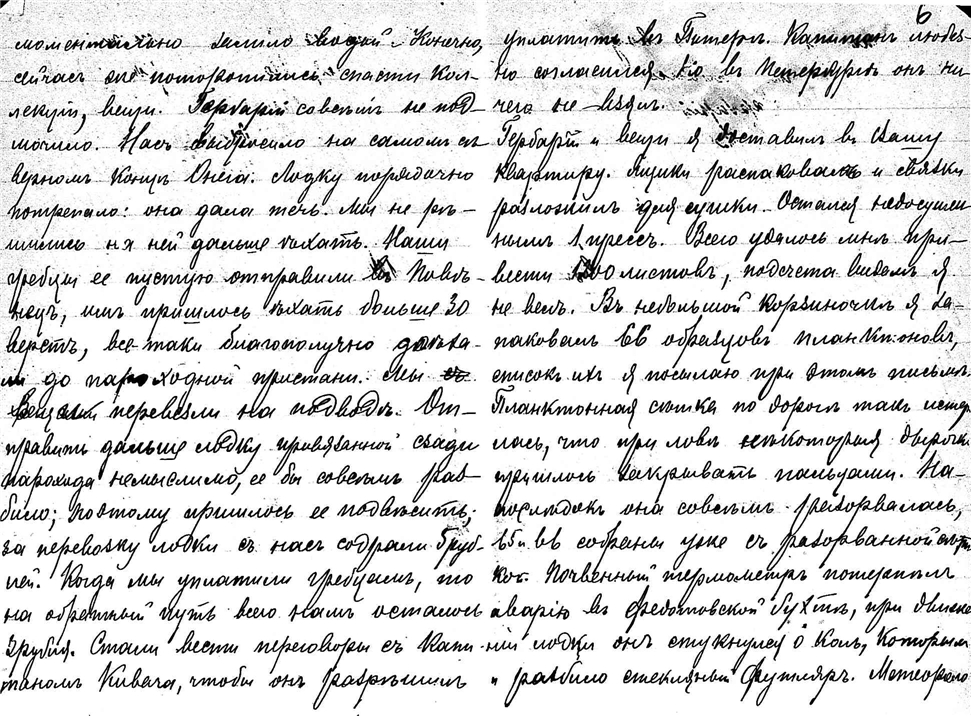 моментально залило водой. Конечно,
сейчасъ же поторопились спасти кол-
лекціи, вещи. Гербарій совсѣмъ не под-
мочило. Насъ выбросило на самомъ сѣ-
верномъ концѣ Онега. Лодку порядочно
потрепало: она дала течь. Мы не рѣ-
шились на ней дальше ѣхать. Наши
гребцы ее пустую отправили въ Повѣ-
нецъ, имъ пришлось ѣхать больше 30
верстъ, все-таки благополучно доѣха-
ли до пароходной пристани. Мы
вещи перевезли на подводѣ. От-
править дальше лодку привязанной сзади
парохода немыслимо, ее бы совсѣмъ раз-
било; поэтому пришлось ее подвѣсить;
за перевозку лодки съ насъ содрали 5 руб-
лей. Когда мы уплатили гребцамъ, то
на обратный путь всего намъ осталось
3 рубля. Стали вести переговоры съ капи-
таномъ Кивача, чтобы онъ разрѣшилъ
6
уплатить въ Питерѣ. Капитанъ любез-
но согласился. Но въ Петербургѣ онъ ни-
чего не взялъ.
Гербарій и вещи я доставилъ въ Вашу
квартиру. Ящики распаковалъ и связки
разложилъ для сушки. Остался недосушен-
нымъ 1 прессъ. Всего удалось мнѣ при-
вести листовъ, подсчета видамъ я
не велъ. Въ небольшой корзиночкѣ я за-
паковалъ 66 образцовъ планктоновъ,
списокъ ихъ я посылаю при этомъ письмѣ.
Планктонная сѣтка по дорогѣ такъ истер-
лась, что при ловѣ нѣкоторыя дырочки
пришлось закрывать пальцами. На-
послѣдокъ она совсѣмъ разорвалась,
и 66 собраны уже съ разорванной сѣт-
кой. Почвенный термометръ потерпѣлъ
аварію въ Федотовской бухтѣ, при движе-
ніи лодки онъ стукнулся о колъ, которымъ
и разбило стекляный футляръ. Метеороло